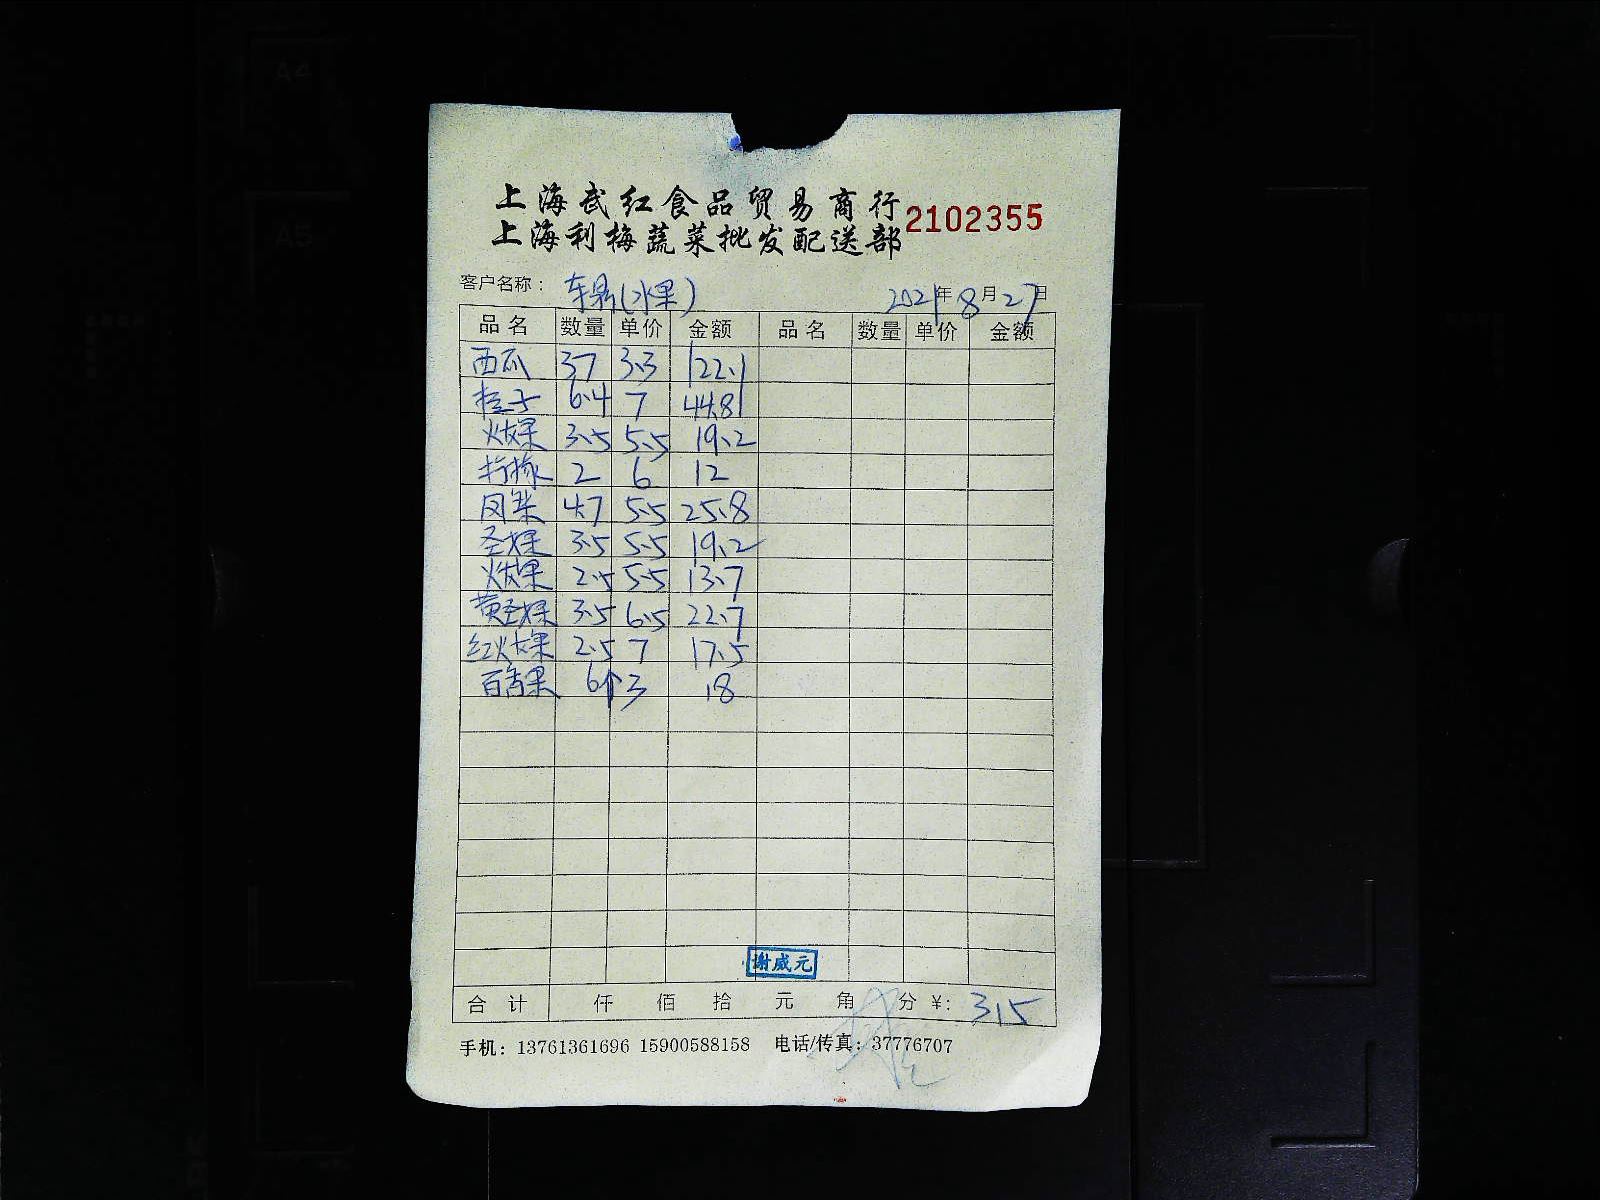 上海武红食品贸易商行
上海利梅蔬菜批发配送部
2102355
客户名称： 车易(水果) 2021年8月27日
品名 数量 单价 金额 品名 数量 单价 金额
西瓜 37 3.3 122.1
桔子 6.4 7 44.81
火龙果 3.5 5.5 19.2
柠檬 2 6 12
凤梨 4.7 5.5 25.8
圣女果 3.5 5.5 19.2
火龙果 2.5 5.5 13.7
黄圣女果 3.5 6.5 22.7
红火龙果 2.5 7 17.5
百香果 6个 3 18
谢咸元
合计 仟 佰 拾 元 角 分 ¥: 315
手机：13761361696 15900588158 电话/传真：37776707